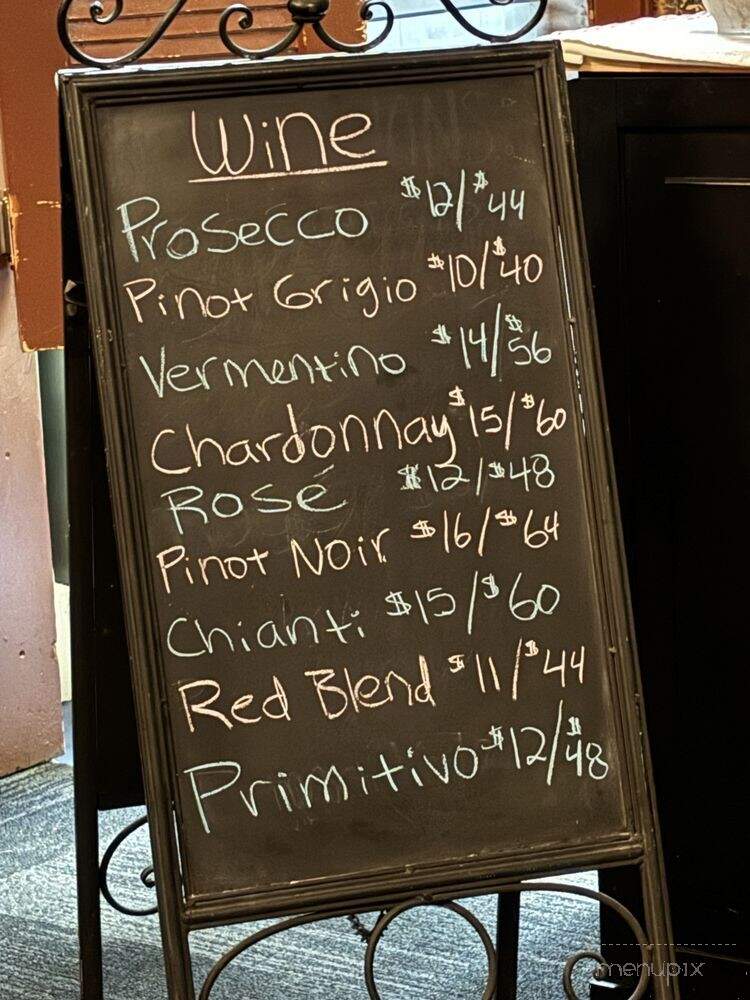 Wine
Prosecco $12/$44
Pinot Grigio $10/$40
Vermentino $14/$56
Chardonnay $15/$60
Rosé $12/$48
Pinot Noir $16/$64
Chianti $15/$60
Red Blend $11/$44
Primitivo $12/$48
menupix